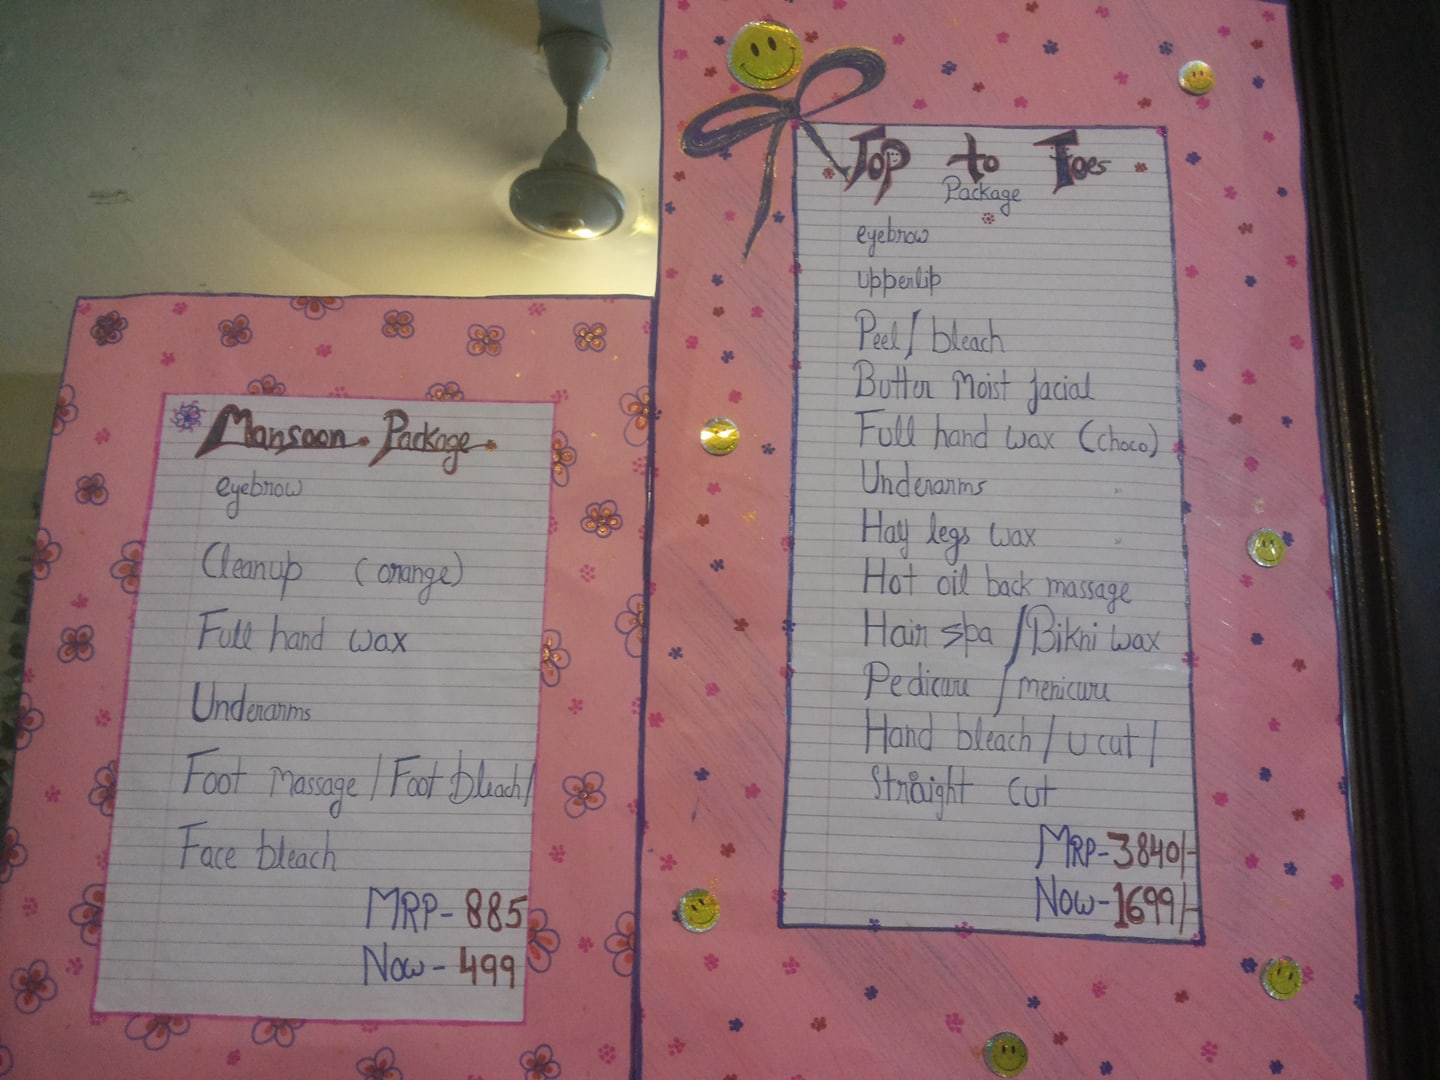 Mansoon. Package.
eyebrow
Cleanup (orange)
Full hand wax
Underarms
Foot massage / Foot bleach /
Face bleach
MRP- 885
Now- 499
Top to Toes
Package
eyebrow
upperlip
Peel / bleach
Butter Moist facial
Full hand wax (choco)
Underarms "
Hay legs wax "
Hot oil back massage
Hair spa / Bikni wax
Pedicuru / menicuru
Hand bleach / U cut /
Straight cut
MRP-3840/-
Now-1699/-